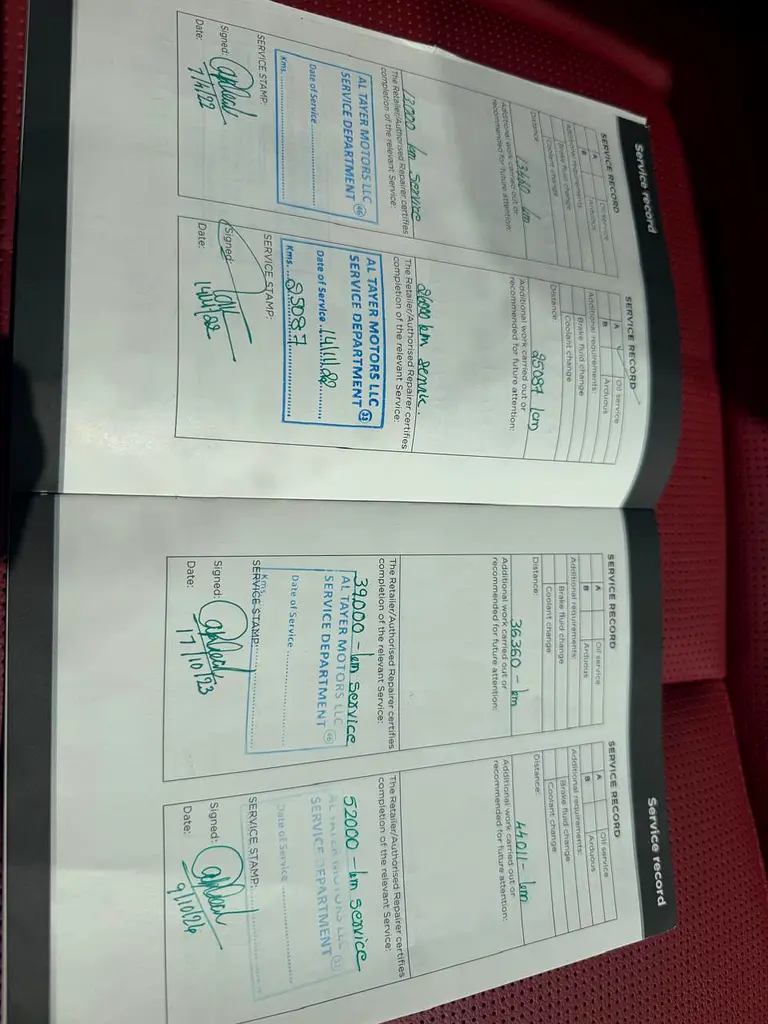 Service record
SERVICE RECORD
A Oil service
B Arduous
Additional requirements:
Brake fluid change
Coolant change
Distance:
13460 km
Additional work carried out or
recommended for future attention:
13,000 km Service
The Retailer/Authorised Repairer certifies
completion of the relevant Service:
AL TAYER MOTORS LLC
SERVICE DEPARTMENT 46
Date of Service
Kms.
SERVICE STAMP:
Signed:
Date: 7/4/22
SERVICE RECORD
A Oil service
B Arduous
Additional requirements:
Brake fluid change
Coolant change
Distance:
25087 km
Additional work carried out or
recommended for future attention:
26000 km Service.
The Retailer/Authorised Repairer certifies
completion of the relevant Service:
AL TAYER MOTORS LLC
SERVICE DEPARTMENT 33
Date of Service 14.11.22
Kms. 25087
SERVICE STAMP:
Signed:
Date: 14/11/22
SERVICE RECORD
A Oil service
B Arduous
Additional requirements:
Brake fluid change
Coolant change
Distance:
36360 - km
Additional work carried out or
recommended for future attention:
The Retailer/Authorised Repairer certifies
completion of the relevant Service:
39,000 - km Service
AL TAYER MOTORS LLC
SERVICE DEPARTMENT 46
Date of Service
Kms.
SERVICE STAMP:
Signed:
Date: 17/10/23
Service record
SERVICE RECORD
A Oil service
B Arduous
Additional requirements:
Brake fluid change
Coolant change
Distance:
44011 - km
Additional work carried out or
recommended for future attention:
The Retailer/Authorised Repairer certifies
completion of the relevant Service:
52000 - km Service
AL TAYER MOTORS LLC
SERVICE DEPARTMENT 33
Date of Service
SERVICE STAMP:
Signed:
Date: 9/10/24